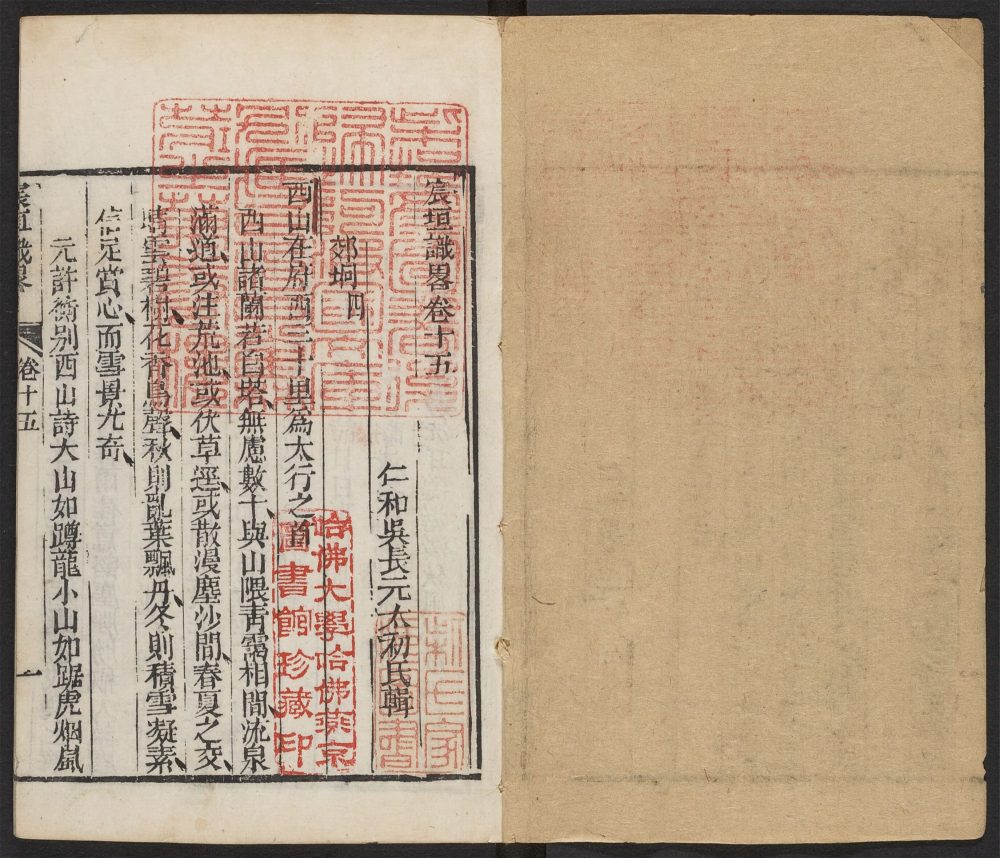 宸垣識畧卷十五
仁和吳長元太初氏輯
郊坰四
西山在府西三十里為太行之首
西山諸蘭若白塔無慮數十與山隈青靄相間流泉
滿道或注荒池或伏草逕或散漫塵沙間春夏之交
晴雲碧樹花香鳥聲秋則亂葉飄丹冬則積雪凝素
信足賞心而雪景尤奇
元許衡別西山詩大山如蹲龍小山如踞虎烟嵐
宸垣識畧
卷十五
一
哈佛大學哈佛燕京
圖書館珍藏印